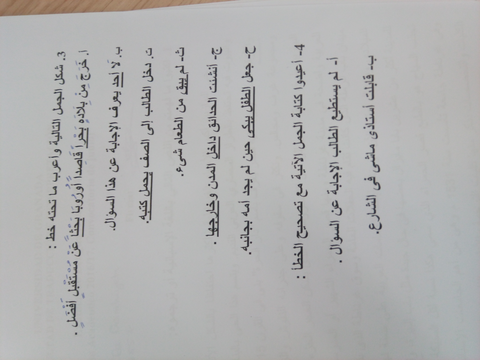 3. شكل الجمل التالية وأعرب ما تحته خط :
أ. خَرَجَ مِن بِلَادِهِ بَحْراً قَاصِداً أوْرُوبَا بَحْثاً عَنْ مُسْتَقْبَلٍ أفْضَلٍ .
ب. لَا أحد يعرف الإجابة عن هذا السؤال.
ت. دخل الطالب إلى الصف يحمل كتبه.
ث- لم يبق من الطعام شيء.
ج- أنشئت الحدائق داخل المدن وخارجها .
ح- جعل الطفل يبكى حين لم يجد أمه بجانبه.
4- أعيدوا كتابة الجمل الآتية مع تصحيح الخطأ :
أ- لم يستطيع الطالب الإجابة عن السؤال .
ب- قابلت أستاذى ماشى فى الشارع.